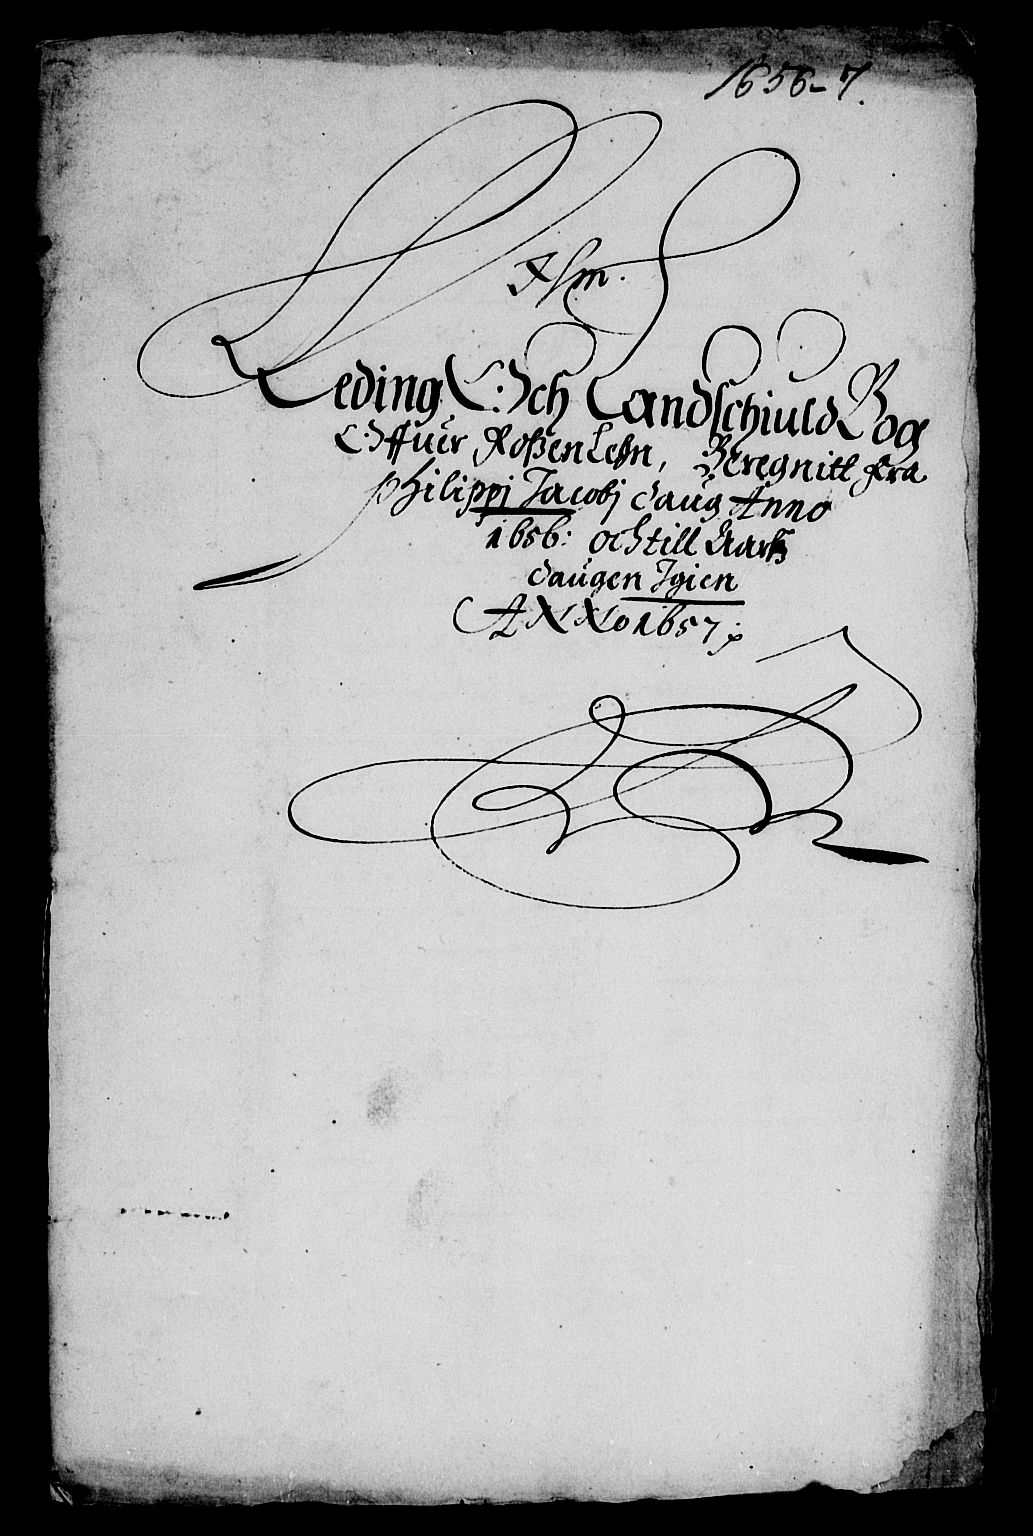 1656-7.
Leding Och Landschiuld Bog
Offuer Roßen Lehn, Beregnitt fra
Philippi Jacobj daug Anno
1656: och till Aarß
daugen Igien
ANNo 1657